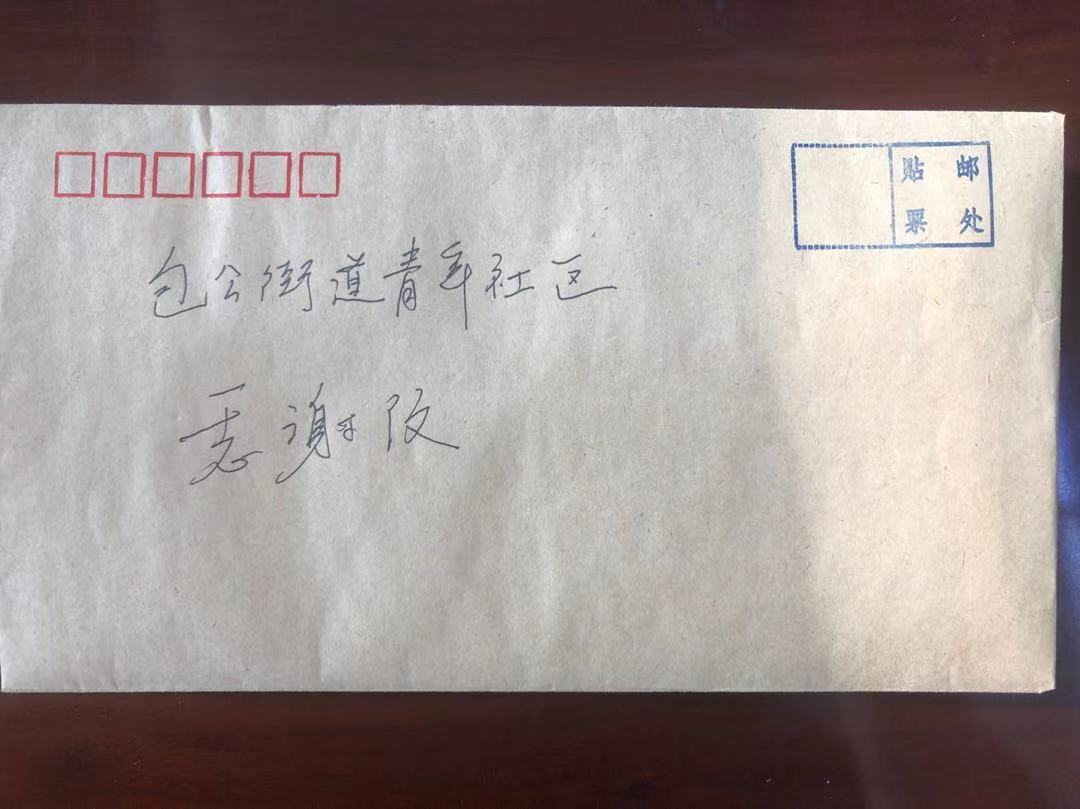 贴 邮
票 处
包公街道青年社区
谢